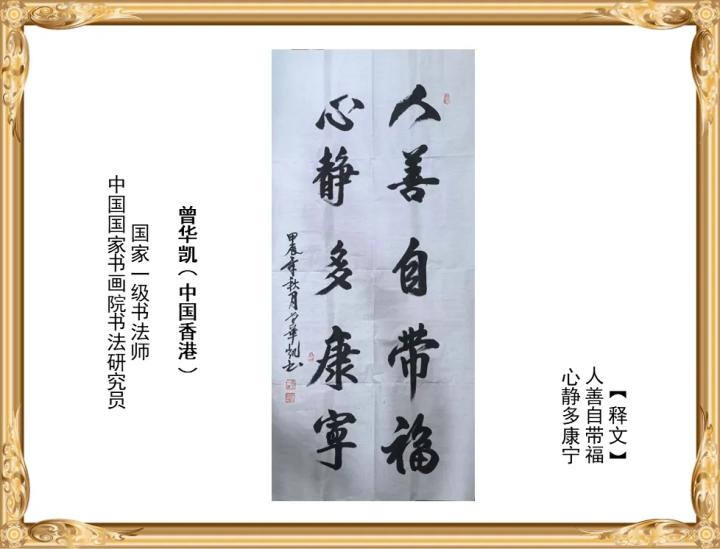 人善自带福
心静多康宁
甲辰年秋月曾华凯书
曾华凯（中国香港）
国家一级书法师
中国国家书画院书法研究员
【释文】
人善自带福
心静多康宁